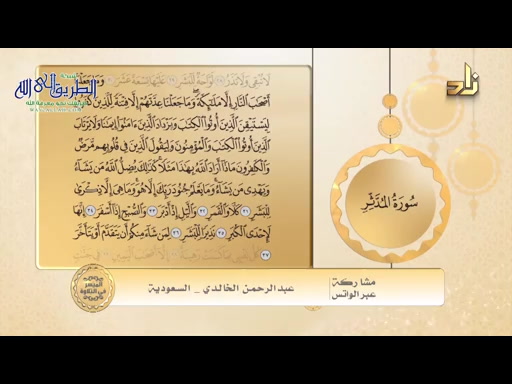 لَا تُبْقِي وَلَا تَذَرُ ٢٨ لَوَّاحَةٌ لِّلْبَشَرِ ٢٩ عَلَيْهَا تِسْعَةَ عَشَرَ ٣٠ وَمَا جَعَلْنَا
أَصْحَابَ النَّارِ إِلَّا مَلَائِكَةً وَمَا جَعَلْنَا عِدَّتَهُمْ إِلَّا فِتْنَةً لِّلَّذِينَ كَفَرُوا
لِيَسْتَيْقِنَ الَّذِينَ أُوتُوا الْكِتَابَ وَيَزْدَادَ الَّذِينَ آمَنُوا إِيمَانًا وَلَا يَرْتَابَ
الَّذِينَ أُوتُوا الْكِتَابَ وَالْمُؤْمِنُونَ وَلِيَقُولَ الَّذِينَ فِي قُلُوبِهِم مَّرَضٌ
وَالْكَافِرُونَ مَاذَا أَرَادَ اللَّهُ بِهَذَا مَثَلًا كَذَلِكَ يُضِلُّ اللَّهُ مَن يَشَاءُ
وَيَهْدِي مَن يَشَاءُ وَمَا يَعْلَمُ جُنُودَ رَبِّكَ إِلَّا هُوَ وَمَا هِيَ إِلَّا ذِكْرَى
لِلْبَشَرِ ٣١ كَلَّا وَالْقَمَرِ ٣٢ وَاللَّيْلِ إِذْ أَدْبَرَ ٣٣ وَالصُّبْحِ إِذَا أَسْفَرَ ٣٤ إِنَّهَا
لَإِحْدَى الْكُبَرِ ٣٥ نَذِيرًا لِّلْبَشَرِ ٣٦ لِمَن شَاءَ مِنكُمْ أَن يَتَقَدَّمَ أَوْ يَتَأَخَّرَ
٣٧
سُورَةُ الْمُدَّثِّرِ
زاد
الطريق إلى الله
مشاركة
عبر الواتس
عبدالرحمن الخالدي _ السعودية
الميسر
في التلاوة